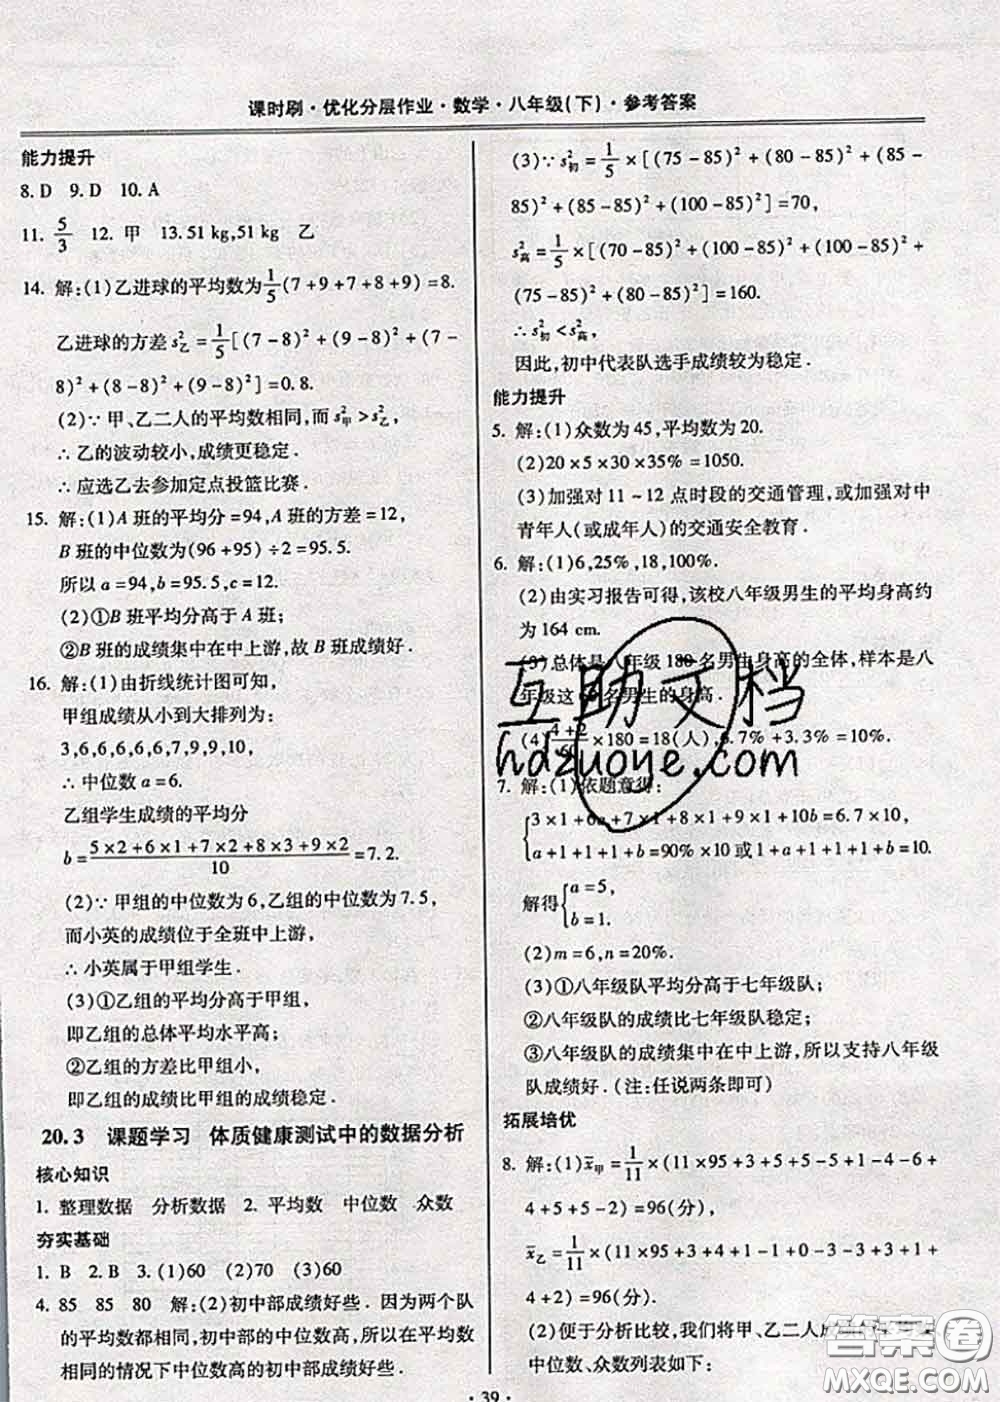 课时刷·优化分层作业·数学·八年级(下)·参考答案
能力提升
8. D 9. D 10. A
11. 5/3 12. 甲 13. 51 kg,51 kg 乙
14. 解:(1)乙进球的平均数为1/5(7+9+7+8+9)=8.
乙进球的方差s²乙=1/5[(7-8)²+(9-8)²+(7-
8)²+(8-8)²+(9-8)²]=0.8.
(2)∵甲、乙二人的平均数相同,而s²甲>s²乙,
∴乙的波动较小,成绩更稳定.
∴应选乙去参加定点投篮比赛.
15. 解:(1)A班的平均分=94,A班的方差=12,
B班的中位数为(96+95)÷2=95.5.
所以a=94,b=95.5,c=12.
(2)①B班平均分高于A班;
②B班的成绩集中在中上游,故B班成绩好.
16. 解:(1)由折线统计图可知,
甲组成绩从小到大排列为:
3,6,6,6,6,6,7,9,9,10,
∴中位数a=6.
乙组学生成绩的平均分
b=(5×2+6×1+7×2+8×3+9×2)/10=7.2.
(2)∵甲组的中位数为6,乙组的中位数为7.5,
而小英的成绩位于全班中上游,
∴小英属于甲组学生.
(3)①乙组的平均分高于甲组,
即乙组的总体平均水平高;
②乙组的方差比甲组小,
即乙组的成绩比甲组的成绩稳定.
20.3 课题学习 体质健康测试中的数据分析
核心知识
1. 整理数据 分析数据 2. 平均数 中位数 众数
夯实基础
1. B 2. B 3. (1)60 (2)70 (3)60
4. 85 85 80 解:(2)初中部成绩好些.因为两个队
的平均数都相同,初中部的中位数高,所以在平均数
相同的情况下中位数高的初中部成绩好些.
(3)∵s²初=1/5×[(75-85)²+(80-85)²+(85-
85)²+(85-85)²+(100-85)²]=70,
s²高=1/5×[(70-85)²+(100-85)²+(100-85)²+
(75-85)²+(80-85)²]=160.
∴s²初<s²高,
因此,初中代表队选手成绩较为稳定.
能力提升
5. 解:(1)众数为45,平均数为20.
(2)20×5×30×35%=1050.
(3)加强对11~12点时段的交通管理,或加强对中
青年人(或成年人)的交通安全教育.
6. 解:(1)6,25%,18,100%.
(2)由实习报告可得,该校八年级男生的平均身高约
为164 cm.
(3)总体是八年级180名男生身高的全体,样本是八
年级这60名男生的身高.
(4)(4+2)/60×180=18(人),6.7%+3.3%=10%.
7. 解:(1)依题意得:
{3×1+6a+7×1+8×1+9×1+10b=6.7×10,
a+1+1+1+b=90%×10或1+a+1+1+1+b=10.
解得{a=5,
b=1.
(2)m=6,n=20%.
(3)①八年级队平均分高于七年级队;
②八年级队的成绩比七年级队稳定;
③八年级队的成绩集中在中上游,所以支持八年级
队成绩好.(注:任说两条即可)
拓展培优
8. 解:(1)x̄甲=1/11×(11×95+3+2-2-1-1-2+
4+5+5-2)=96(分),
x̄乙=1/11×(11×95+3+4
(2)便于分析比较,我们将甲、乙二人成绩
中位数、众数列表如下:
·39·
互助文档
hdzuoye.com
答案卷
MXQE.COM